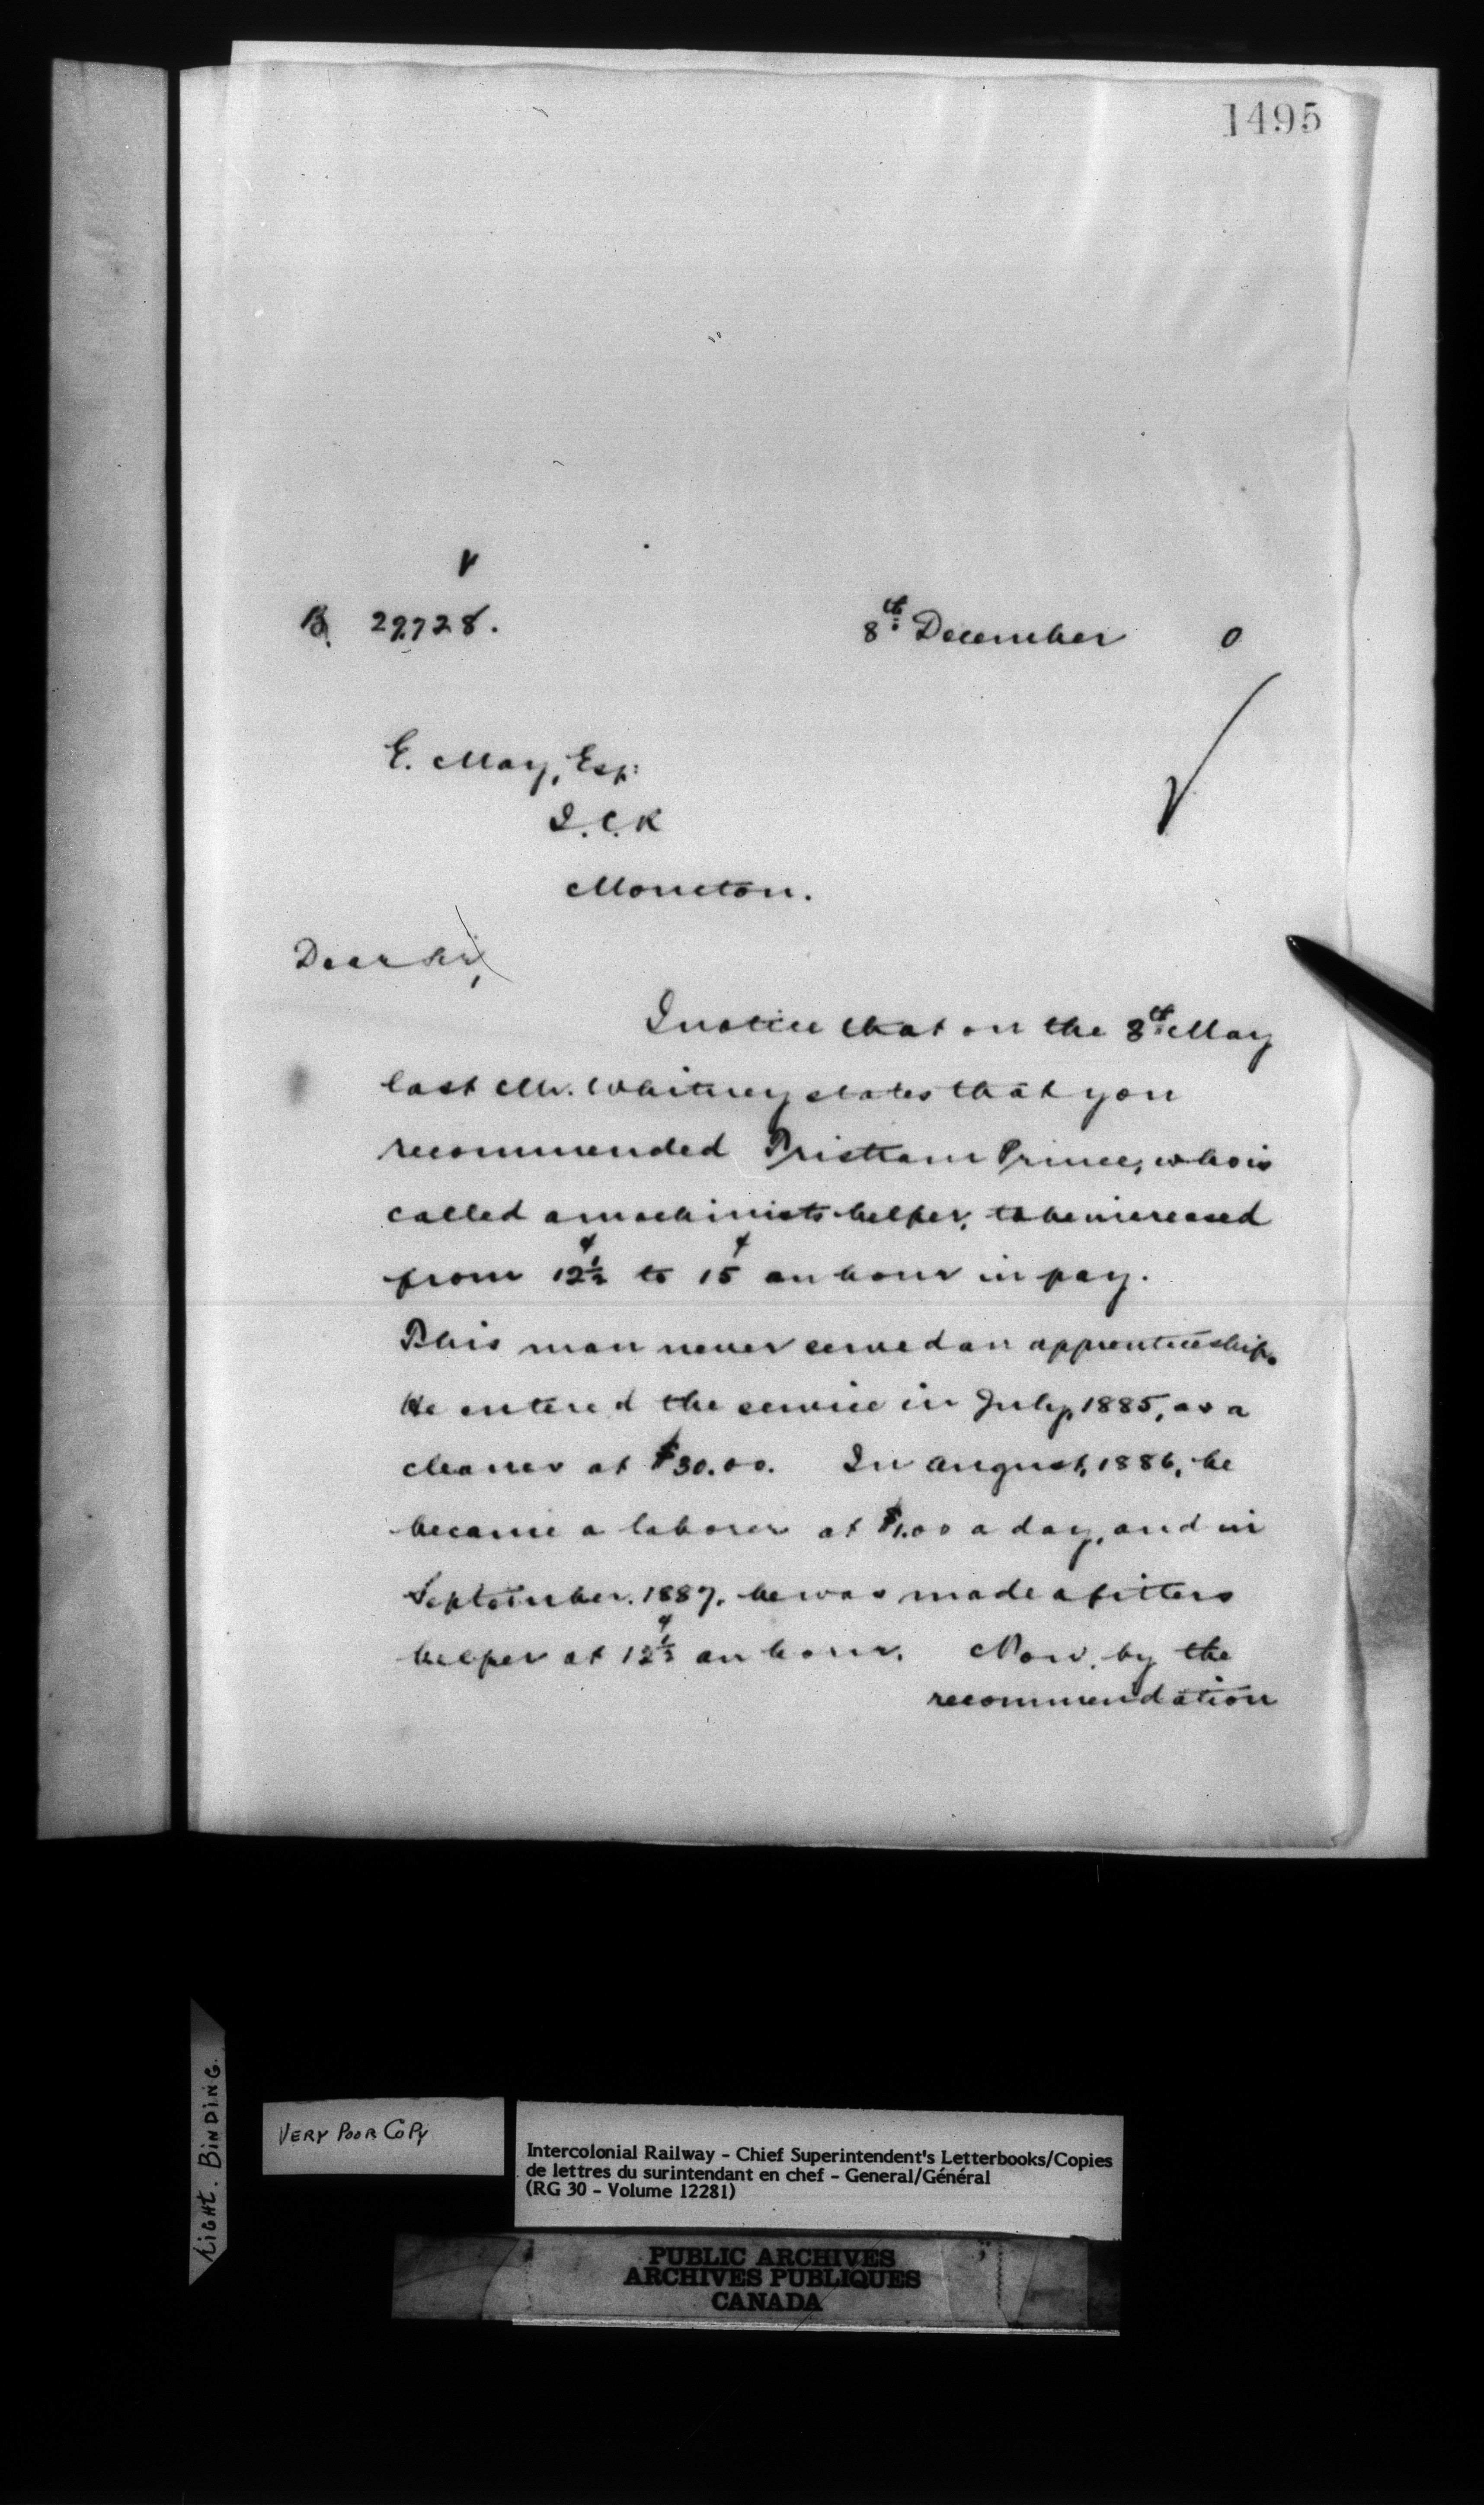 1495
B. 29728.
8th December 0
E. May, Esq:
I.C.R
Moncton.
Dear Sir,
I notice that on the 8th May
last Mr. Whitney states that you
recommended Tristram Prince, who is
called a machinists helper, to be increased
from 12½¢ to 15¢ an hour in pay.
This man never served an apprenticeship.
He entered the service in July, 1885, as a
cleaner at $30.00. In August, 1886, he
became a laborer at $1.00 a day, and in
September, 1887, he was made a fitters
helper at 12½¢ an hour. Now, by the
recommendation
LIGHT. BINDING.
VERY POOR COPY
Intercolonial Railway - Chief Superintendent's Letterbooks/Copies
de lettres du surintendant en chef - General/Général
(RG 30 - Volume 12281)
PUBLIC ARCHIVES
ARCHIVES PUBLIQUES
CANADA